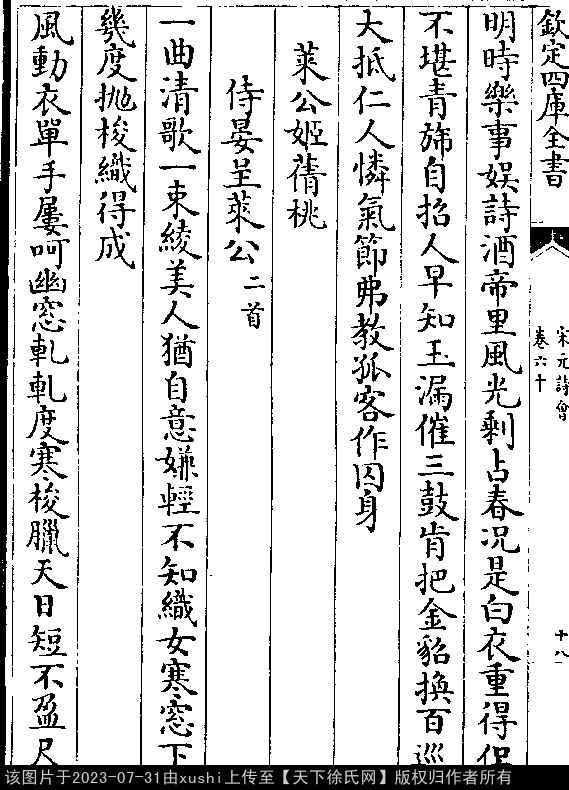 欽定四庫全書
宋元詩會
卷六十
十八
明時樂事娱詩酒帝里風光剩占春况是白衣重得侶
不堪青旆自招人早知玉漏催三鼓肯把金貂換百巡
大抵仁人憐氣節弗教孤客作囚身
萊公姬蒨桃
侍宴呈萊公二首
一曲清歌一束綾美人猶自意嫌輕不知織女寒窓下
幾度抛梭織得成
風動衣單手屢呵幽窓軋軋度寒梭臘天日短不盈尺
该图片于2023-07-31由xushi上传至【天下徐氏网】版权归作者所有